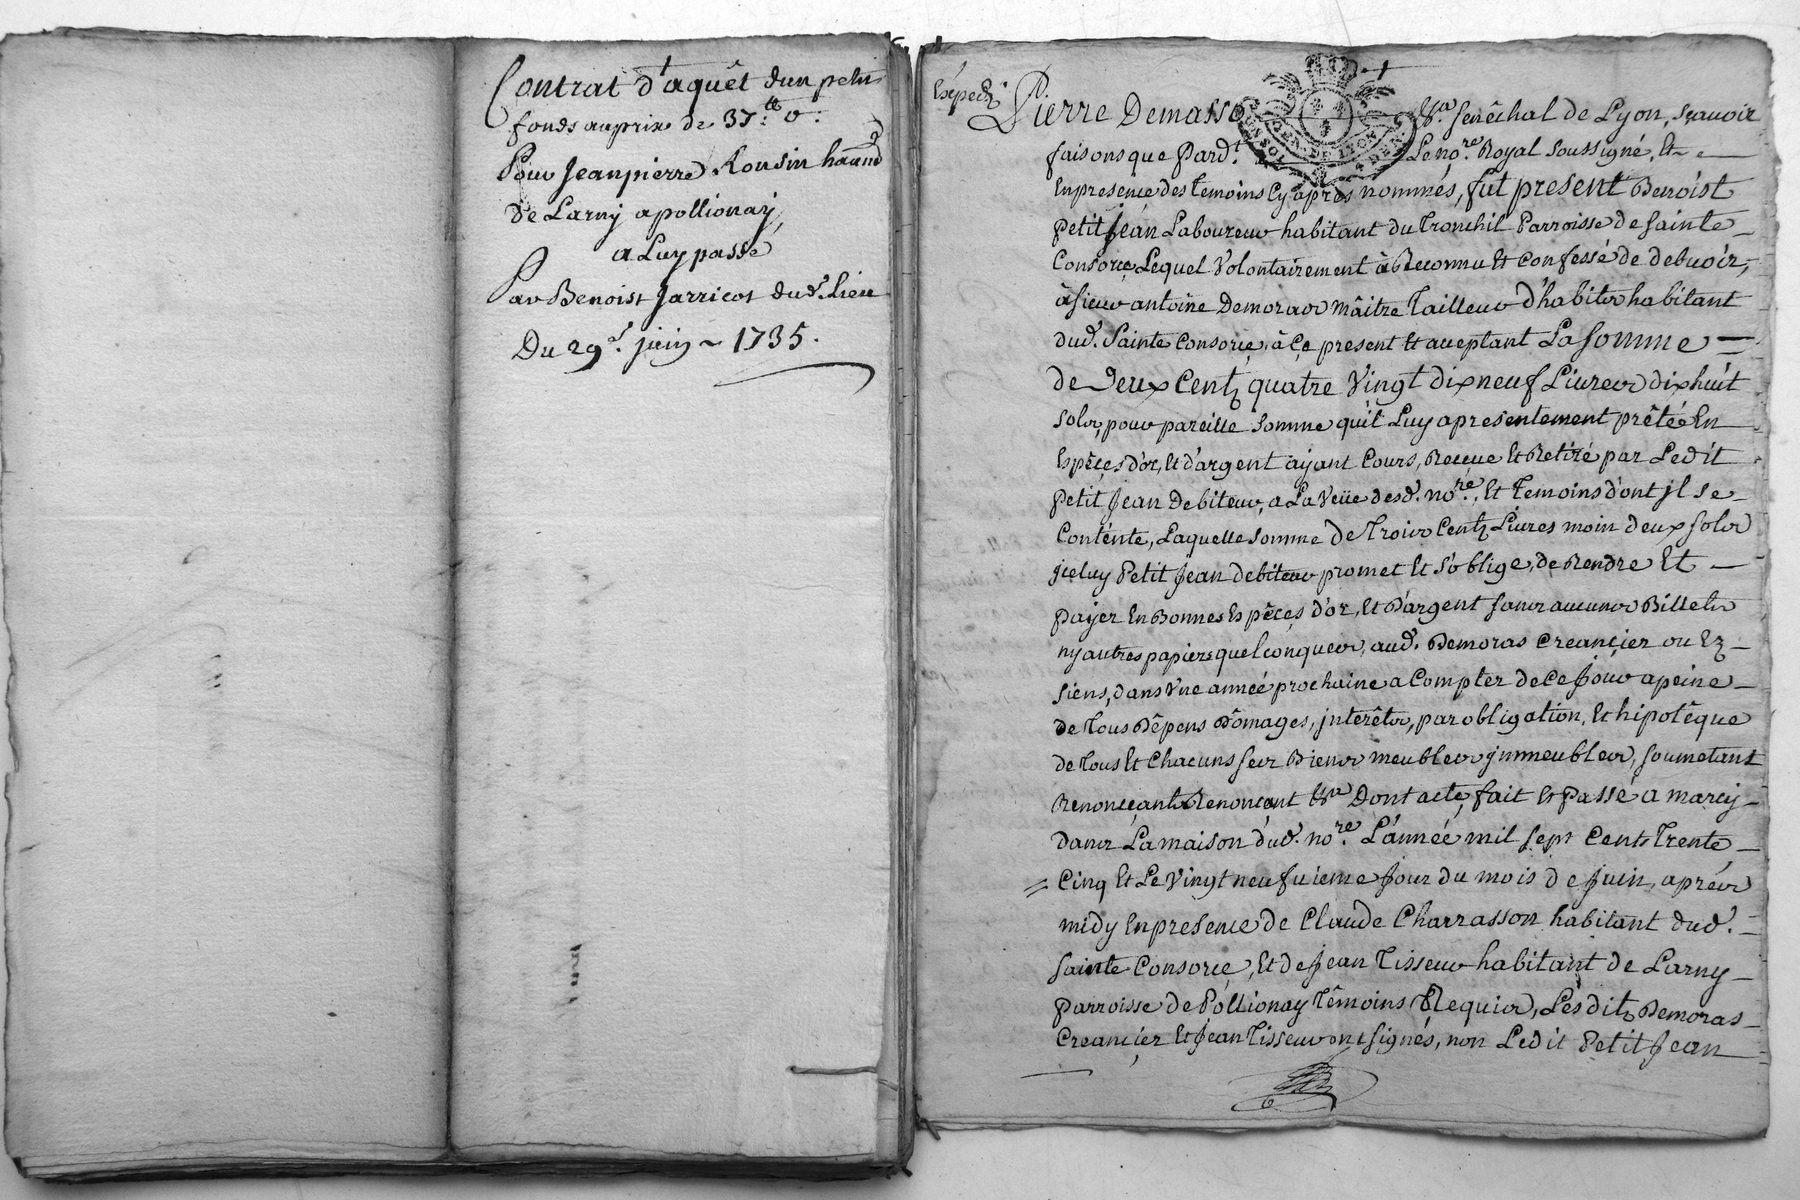 Contrat d'aquêt d'un petit
fonds au prix de 37.tt 0.s
Pour Jeanpierre Rousin habitand
de Larny a pollionay,
a Luy passé
Par Benoist Jarricot dud. Lieu
Du 29.e juin ~ 1735.
Expedié Pierre Demasso &ra. Senêchal de Lyon, sçavoir
faisons que Pard.t Le no.re Royal soussigné, Et
En presence des temoins Cy aprés nommés, fut present Benoist
Petit Jean Laboureur habitant du Tronchil Parroisse de sainte
Consorce Lequel Volontairement à Reconnu Et Confessé de debvoir,
à sieur antoine Demoras Mâitre Tailleur d'habits habitant
dud. Sainte Consorce, à Ce present Et acceptant La Somme
de Deux Cents quatre Vingt dixneuf Livres dixhuit
sols, pour pareille somme qu'il Luy a presentement prêtée En
Espêces d'or, Et d'argent ayant Cours, Reçeue Et Retiré par Ledit
Petit Jean Debiteur, a La Veüe desd. no.re, Et Temoins dont jl se
Contente, Laquelle somme de Trois Cents Livres moin deux sols
jceluy Petit Jean debiteur promet Et s'oblige, de Rendre Et
Payer En Bonnes Espêces d'or, Et D'argent sans aucuns Billets
ny autres papiers quelconques, aud. Demoras Creancier ou Ez
siens, dans Une année prochaine a Compter de Ce Jour a peine
de Tous Dêpens Dômages, jnterêts, par obligation, Et hipotêque
de Tous Et Chacuns ses Biens meubles jmmeubles, soumetant
Renonceant Renonceant &ra Dont acte, fait Et Passé a marcy
dans La maison dud. no.re L'année mil sept Cents Trente
Cinq Et Le Vingt neufuieme Jour du mois de Juin, aprés
midy En presence de Claude Charrasson habitant dud.
sainte Consorce, Et de Jean Tisseur habitant de Larny
Parroisse de Pollionay Têmoins Requis, Lesdits Demoras
Creancier Et Jean Tisseur ont signés, non Ledit Petit Jean